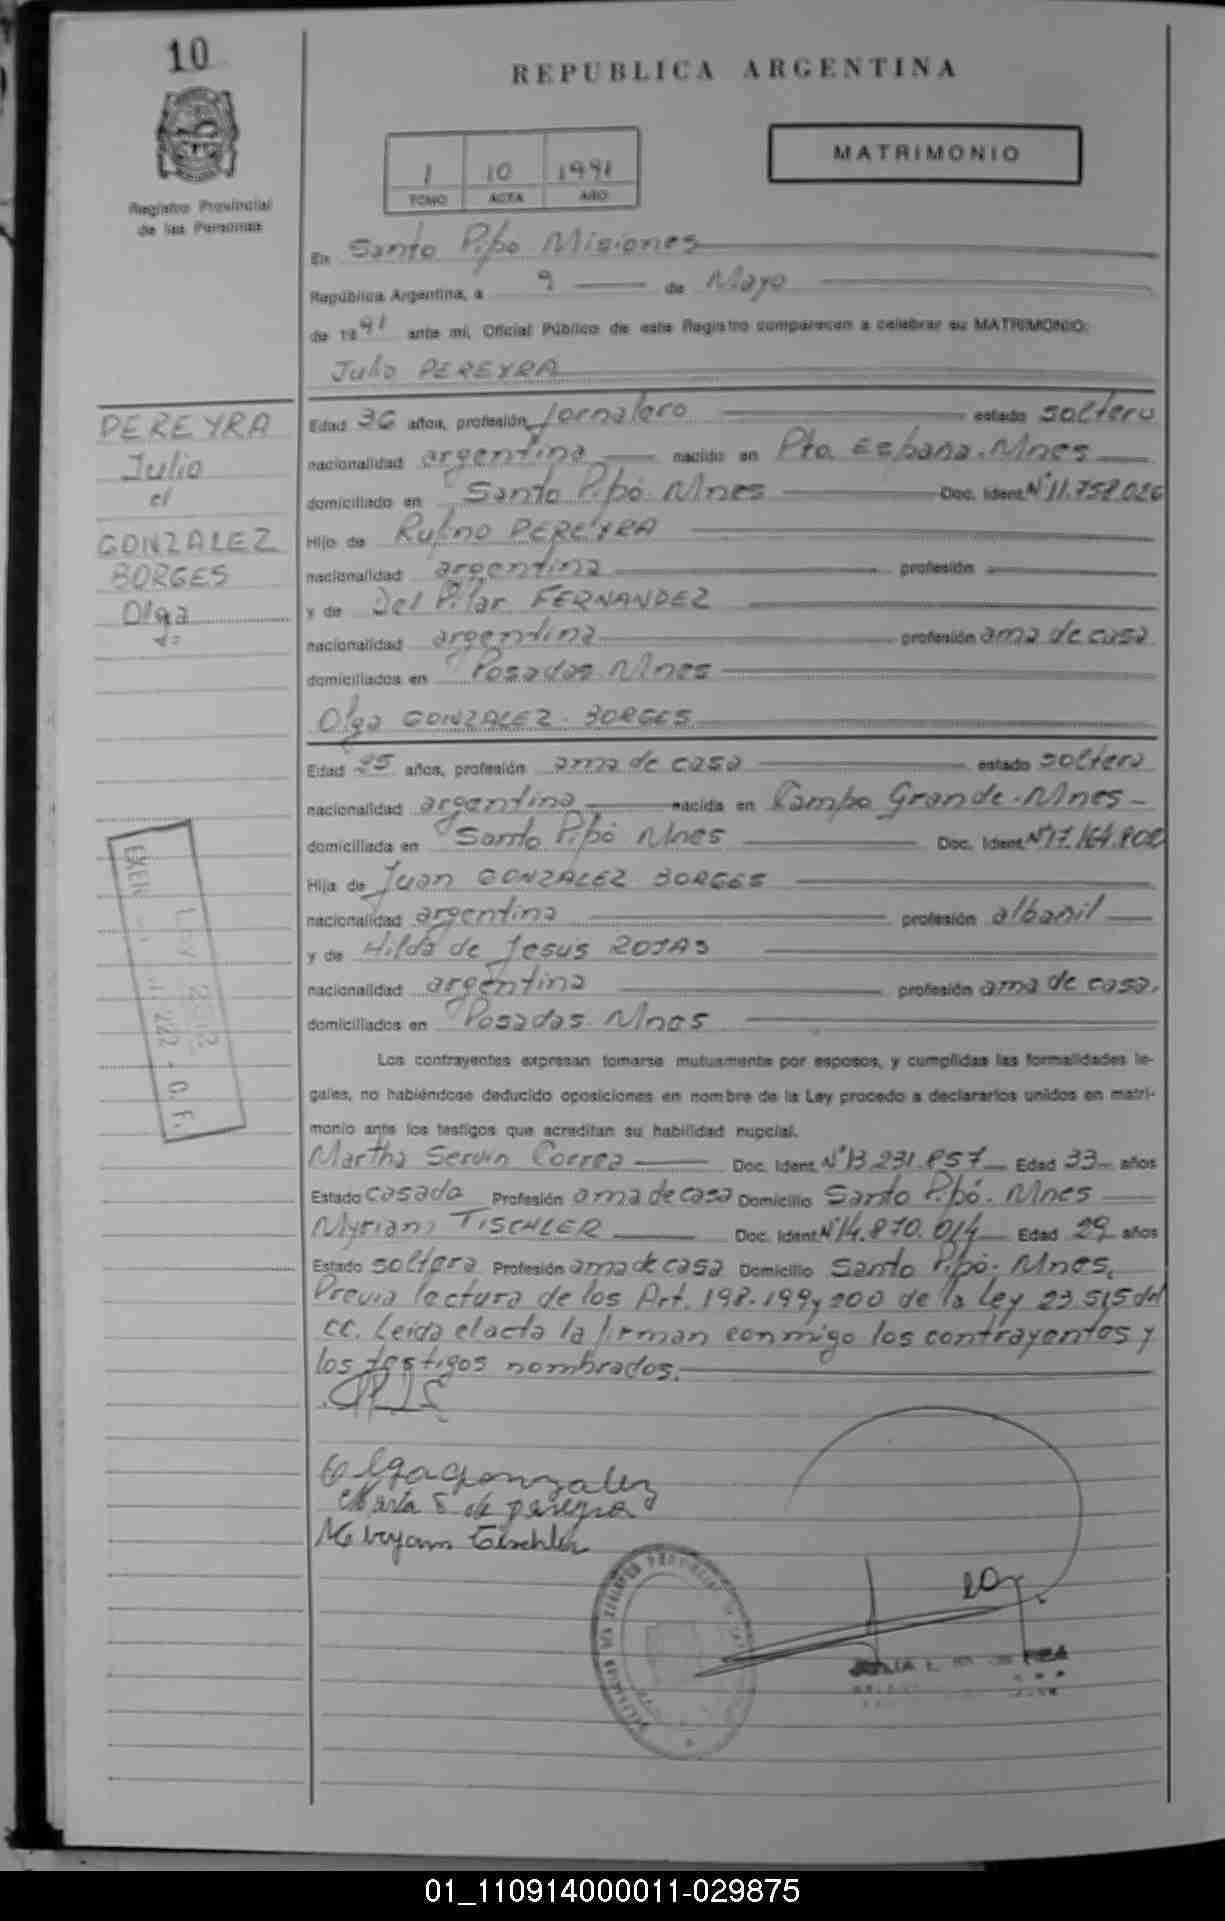 10
REPUBLICA ARGENTINA
Registro Provincial
de las Personas
1 10 1991
TOMO ACTA AÑO
MATRIMONIO
En Santo Pipo Misiones
República Argentina, a 9 de Mayo
de 1991 ante mi, Oficial Público de este Registro comparecen a celebrar su MATRIMONIO:
Julio PEREYRA
PEREYRA
Julio
c/
GONZALEZ
BORGES
Olga
Edad 36 años, profesión Jornalero estado soltero
nacionalidad argentina nacido en Pto. España. Mnes
domiciliado en Santo Pipó. Mnes Doc. Ident. Nº 11.758.026
Hijo de Rufino PEREYRA
nacionalidad argentina profesión
y de Del Pilar FERNANDEZ
nacionalidad argentina profesión ama de casa
domiciliados en Posadas. Mnes
Olga GONZALEZ BORGES
Edad 25 años, profesión ama de casa estado soltera
nacionalidad argentina nacida en Campo Grande. Mnes
domiciliada en Santo Pipó Mnes Doc. Ident. Nº 17.164.802
Hija de Juan GONZALEZ BORGES
nacionalidad argentina profesión albañil
y de Hilda de Jesús ROJAS
nacionalidad argentina profesión ama de casa.
domiciliados en Posadas. Mnes
Ley 222 . O. F.
Los contrayentes expresan tomarse mutuamente por esposos, y cumplidas las formalidades le-
gales, no habiéndose deducido oposiciones en nombre de la Ley procedo a declararlos unidos en matri-
monio ante los testigos que acreditan su habilidad nupcial.
Martha Servin Correa Doc. Ident. Nº 13.231.857 Edad 33 años
Estado casada Profesión ama de casa Domicilio Santo Pipó. Mnes
Myriam TISCHLER Doc. Ident. Nº 14.870.014 Edad 29 años
Estado soltera Profesión ama de casa Domicilio Santo Pipó. Mnes.
Previa lectura de los Art. 198-199 y 200 de la Ley 23.515 del
CC. Leida el acta la firman conmigo los contrayentes y
los testigos nombrados.
Olga Gonzalez
Miryam Tischler
01_110914000011-029875